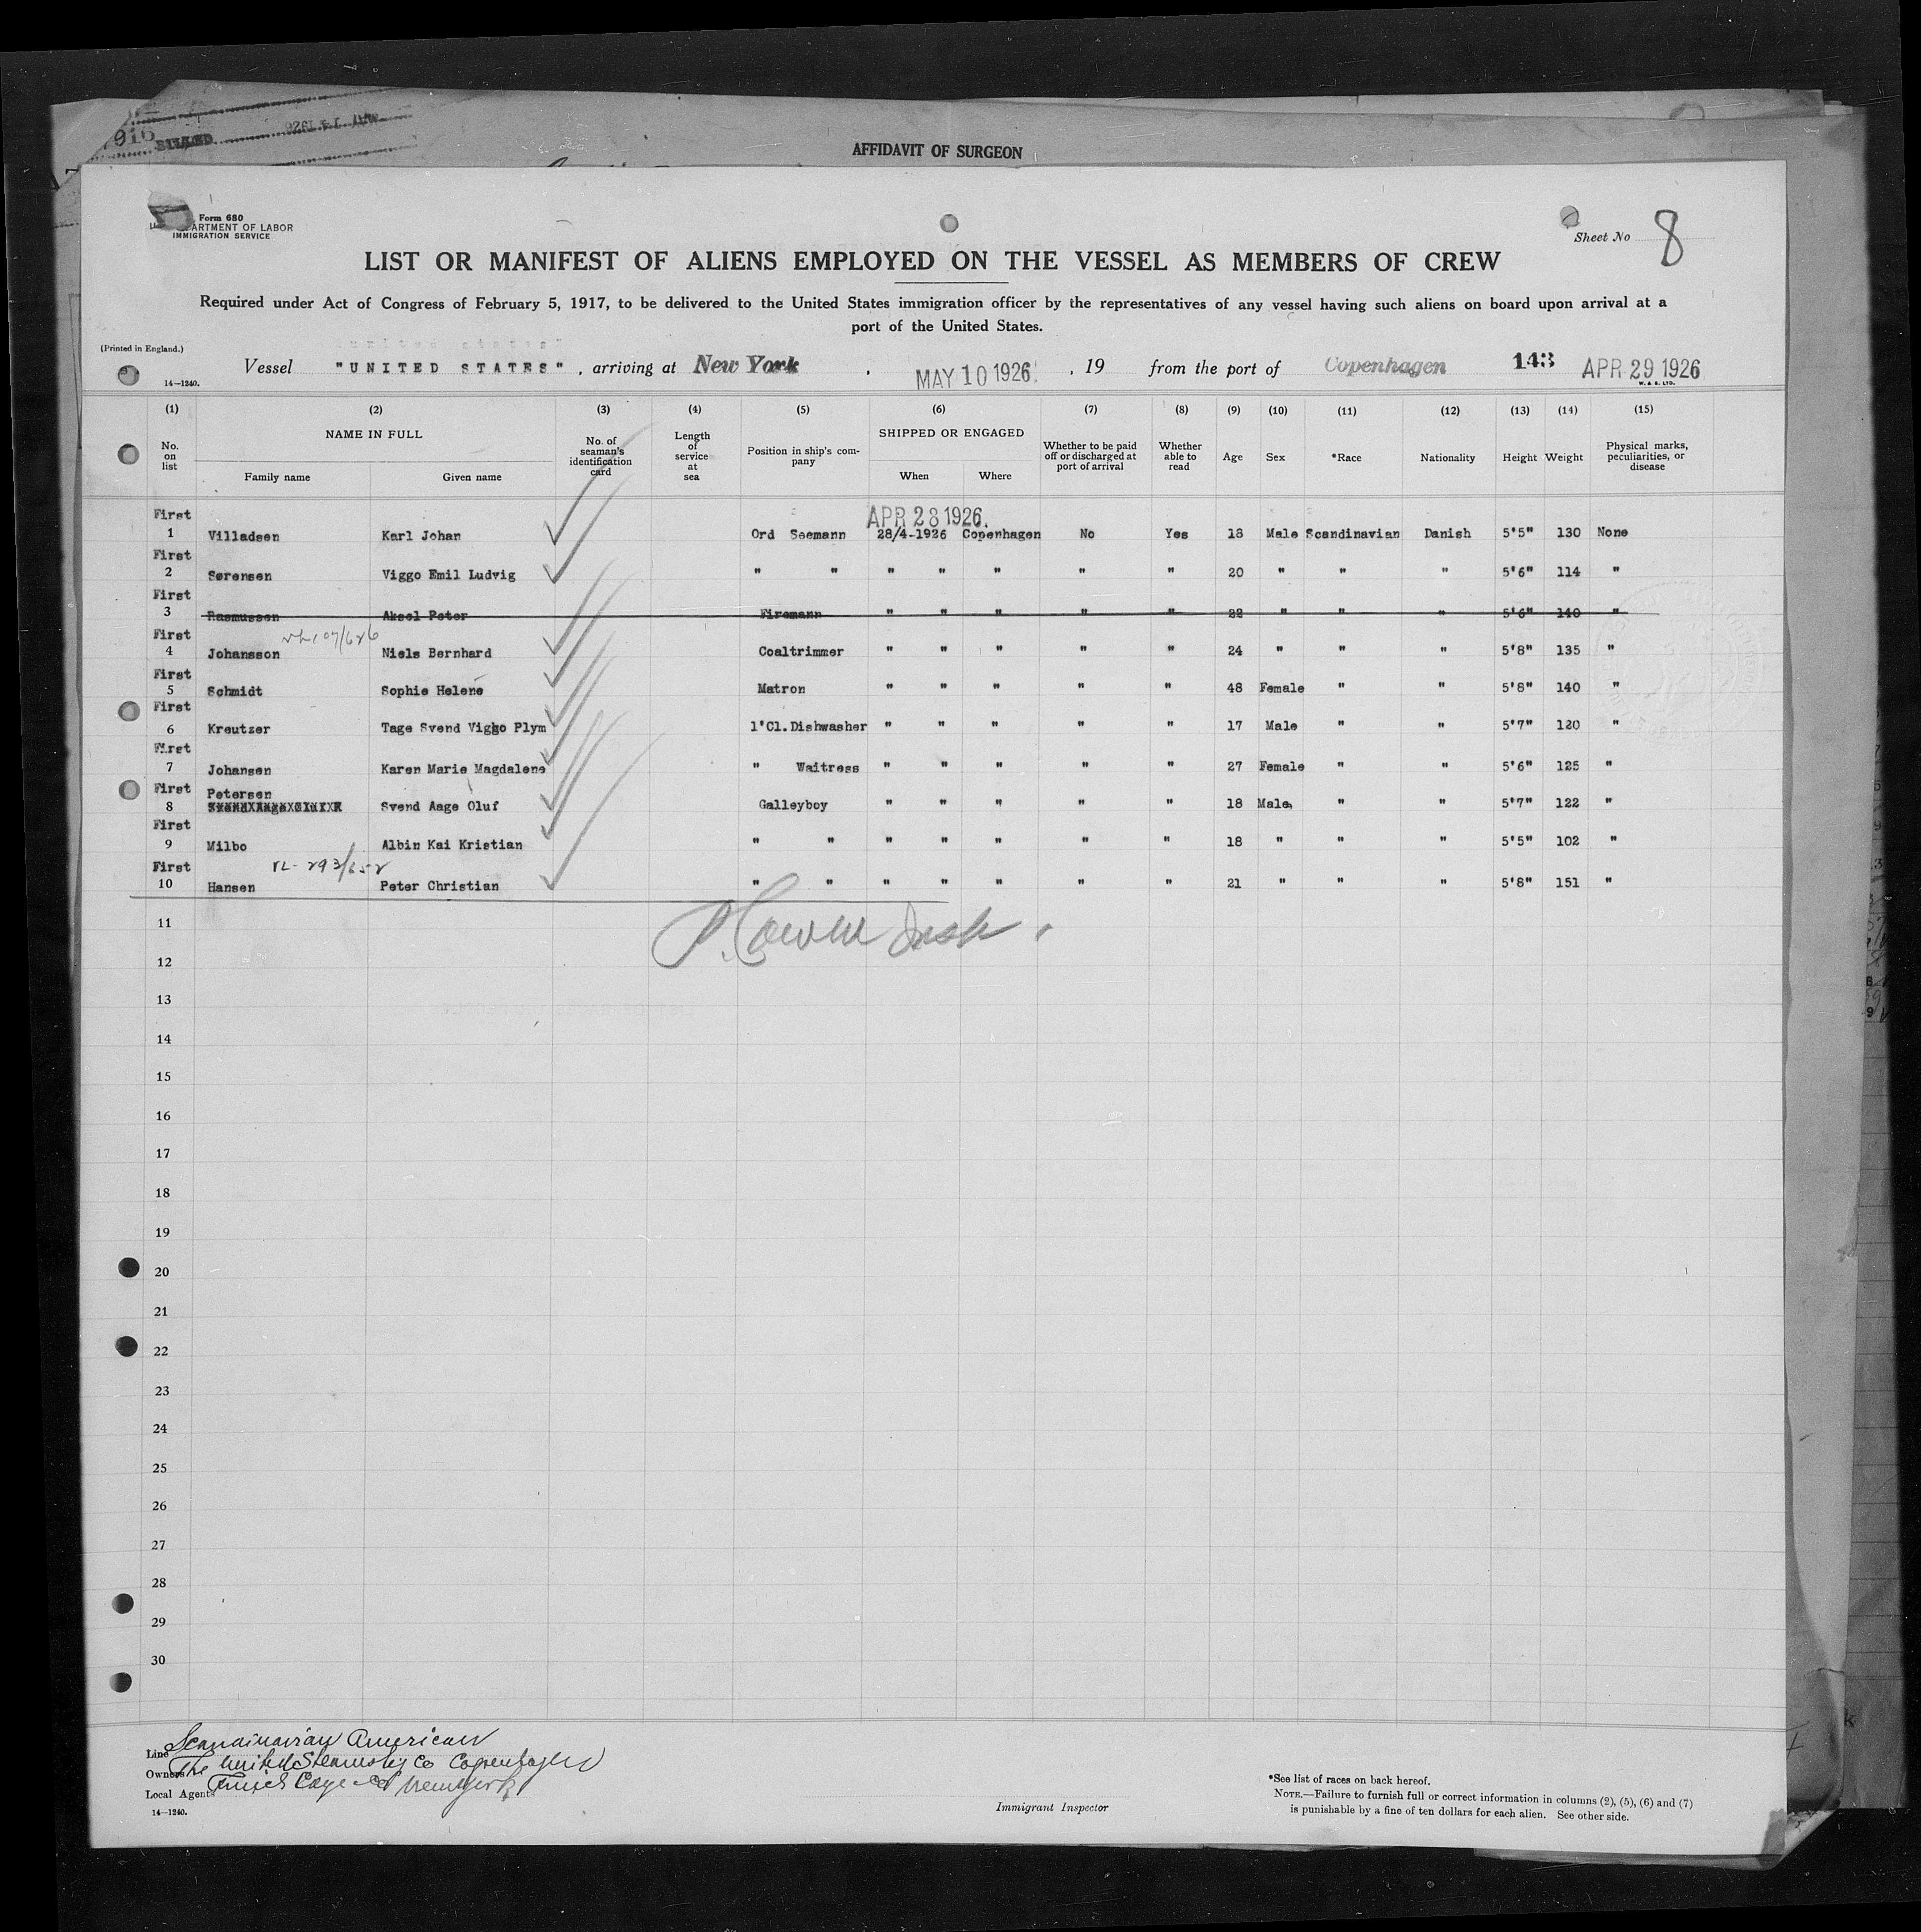 916
BILLED
AFFIDAVIT OF SURGEON
Form 680
ARTMENT OF LABOR
IMMIGRATION SERVICE
Sheet No 8
LIST OR MANIFEST OF ALIENS EMPLOYED ON THE VESSEL AS MEMBERS OF CREW
Required under Act of Congress of February 5, 1917, to be delivered to the United States immigration officer by the representatives of any vessel having such aliens on board upon arrival at a
port of the United States.
(Printed in England.)
Vessel "UNITED STATES", arriving at New York, MAY 10 1926, 19 from the port of Copenhagen 143 APR 29 1926
14—1240.
W. & S. LTD.
(1) (2) (3) (4) (5) (6) (7) (8) (9) (10) (11) (12) (13) (14) (15)
No. on list NAME IN FULL Family name Given name No. of seaman's identification card Length of service at sea Position in ship's company SHIPPED OR ENGAGED When Where Whether to be paid off or discharged at port of arrival Whether able to read Age Sex *Race Nationality Height Weight Physical marks, peculiarities, or disease
APR 28 1926.
First
1 Villadsen Karl Johan Ord Seemann 28/4-1926 Copenhagen No Yes 18 Male Scandinavian Danish 5'5" 130 None
First
2 Sørensen Viggo Emil Ludvig " " " " " " " 20 " " " 5'6" 114 "
First
3 Rasmussen Aksel Peter Firemann " " " " " 22 " " " 5'6" 140 "
First
4 Johansson Niels Bernhard Coaltrimmer " " " " " 24 " " " 5'8" 135 "
First
5 Schmidt Sophie Helene Matron " " " " " 48 Female " " 5'8" 140 "
First
6 Kreutzer Tage Svend Viggo Plym 1'Cl.Dishwasher " " " " " 17 Male " " 5'7" 120 "
First
7 Johansen Karen Marie Magdalene " Waitress " " " " " 27 Female " " 5'6" 125 "
First Petersen
8 Svend Aage Oluf Galleyboy " " " " " 18 Male " " 5'7" 122 "
First
9 Milbo Albin Kai Kristian " " " " " " " 18 " " " 5'5" 102 "
First
10 Hansen Peter Christian " " " " " " " 21 " " " 5'8" 151 "
11
12
13
14
15
16
17
18
19
20
21
22
23
24
25
26
27
28
29
30
Line Scandinavian American
Owners The United Steamship Co Copenhagen
Local Agents
14—1240.
Immigrant Inspector
*See list of races on back hereof.
NOTE.—Failure to furnish full or correct information in columns (2), (5), (6) and (7)
is punishable by a fine of ten dollars for each alien. See other side.